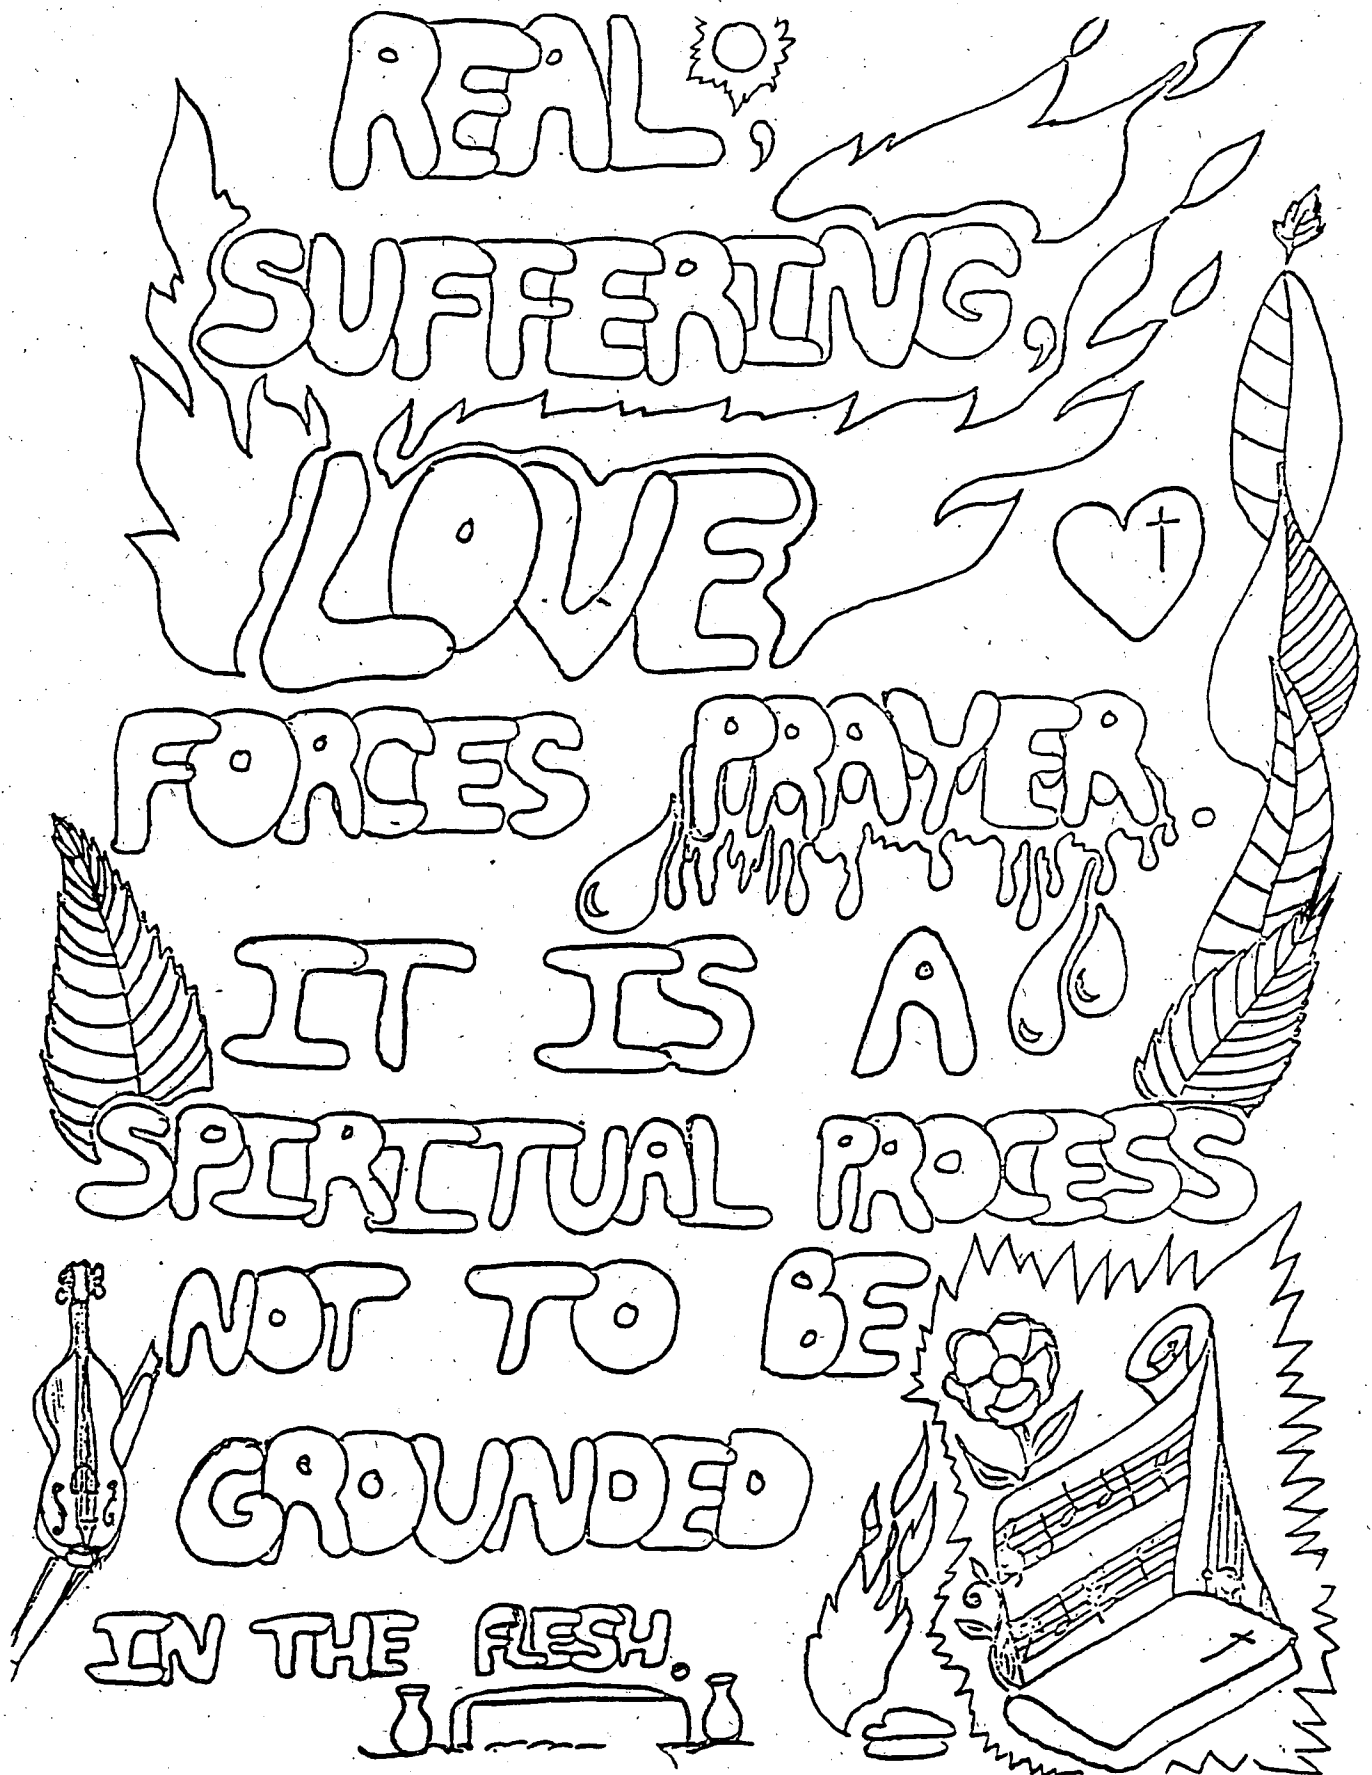 REAL,
SUFFERING,
LOVE
FORCES PRAYER.
IT IS A
SPIRITUAL PROCESS
NOT TO BE
GROUNDED
IN THE FLESH.